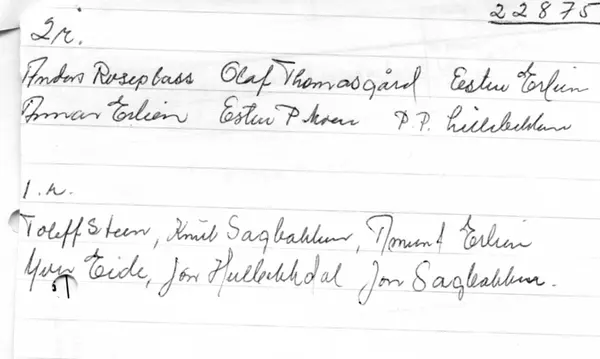 22875
2 r.
Anders Roseplass Olaf Thomasgård Esten Erlien
Annar Erlien Esten P. Moen P.P. Lillebekken
1. r.
Toleff Steen, Knut Sagbakken, Amund Erlien
Eide, Jon Hullekkdal Jon Sagbakken.